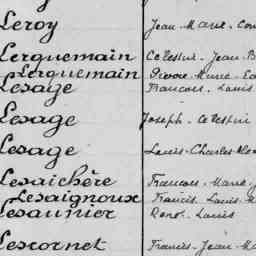 Leroy Jean-Marie-
Lerquemain Celestin-Jean-B
Lerquemain Pierre-Marie-
Lesage Francois-Louis
Lesage Joseph-Celestin
Lesage Louis-Charles-
Lesaichère Francois-Marie-J
Lesaignoux Francis-Louis-M
Lesaunier René-Louis
Lescornet Francis-Jean-Ma